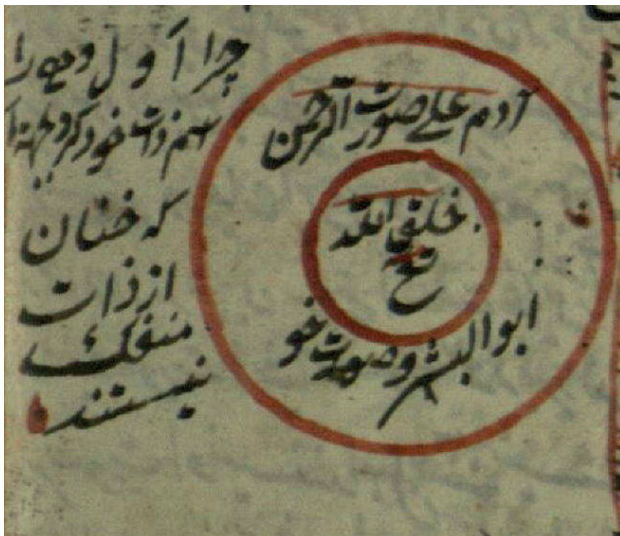 آدم علی صورت الرحمن
خلق الله
تع
ابو البشر و صورت خو
چرا آ و ل و مے را
اسم ذات خود کرد
که خنان
از ذات
منفک
نیستند